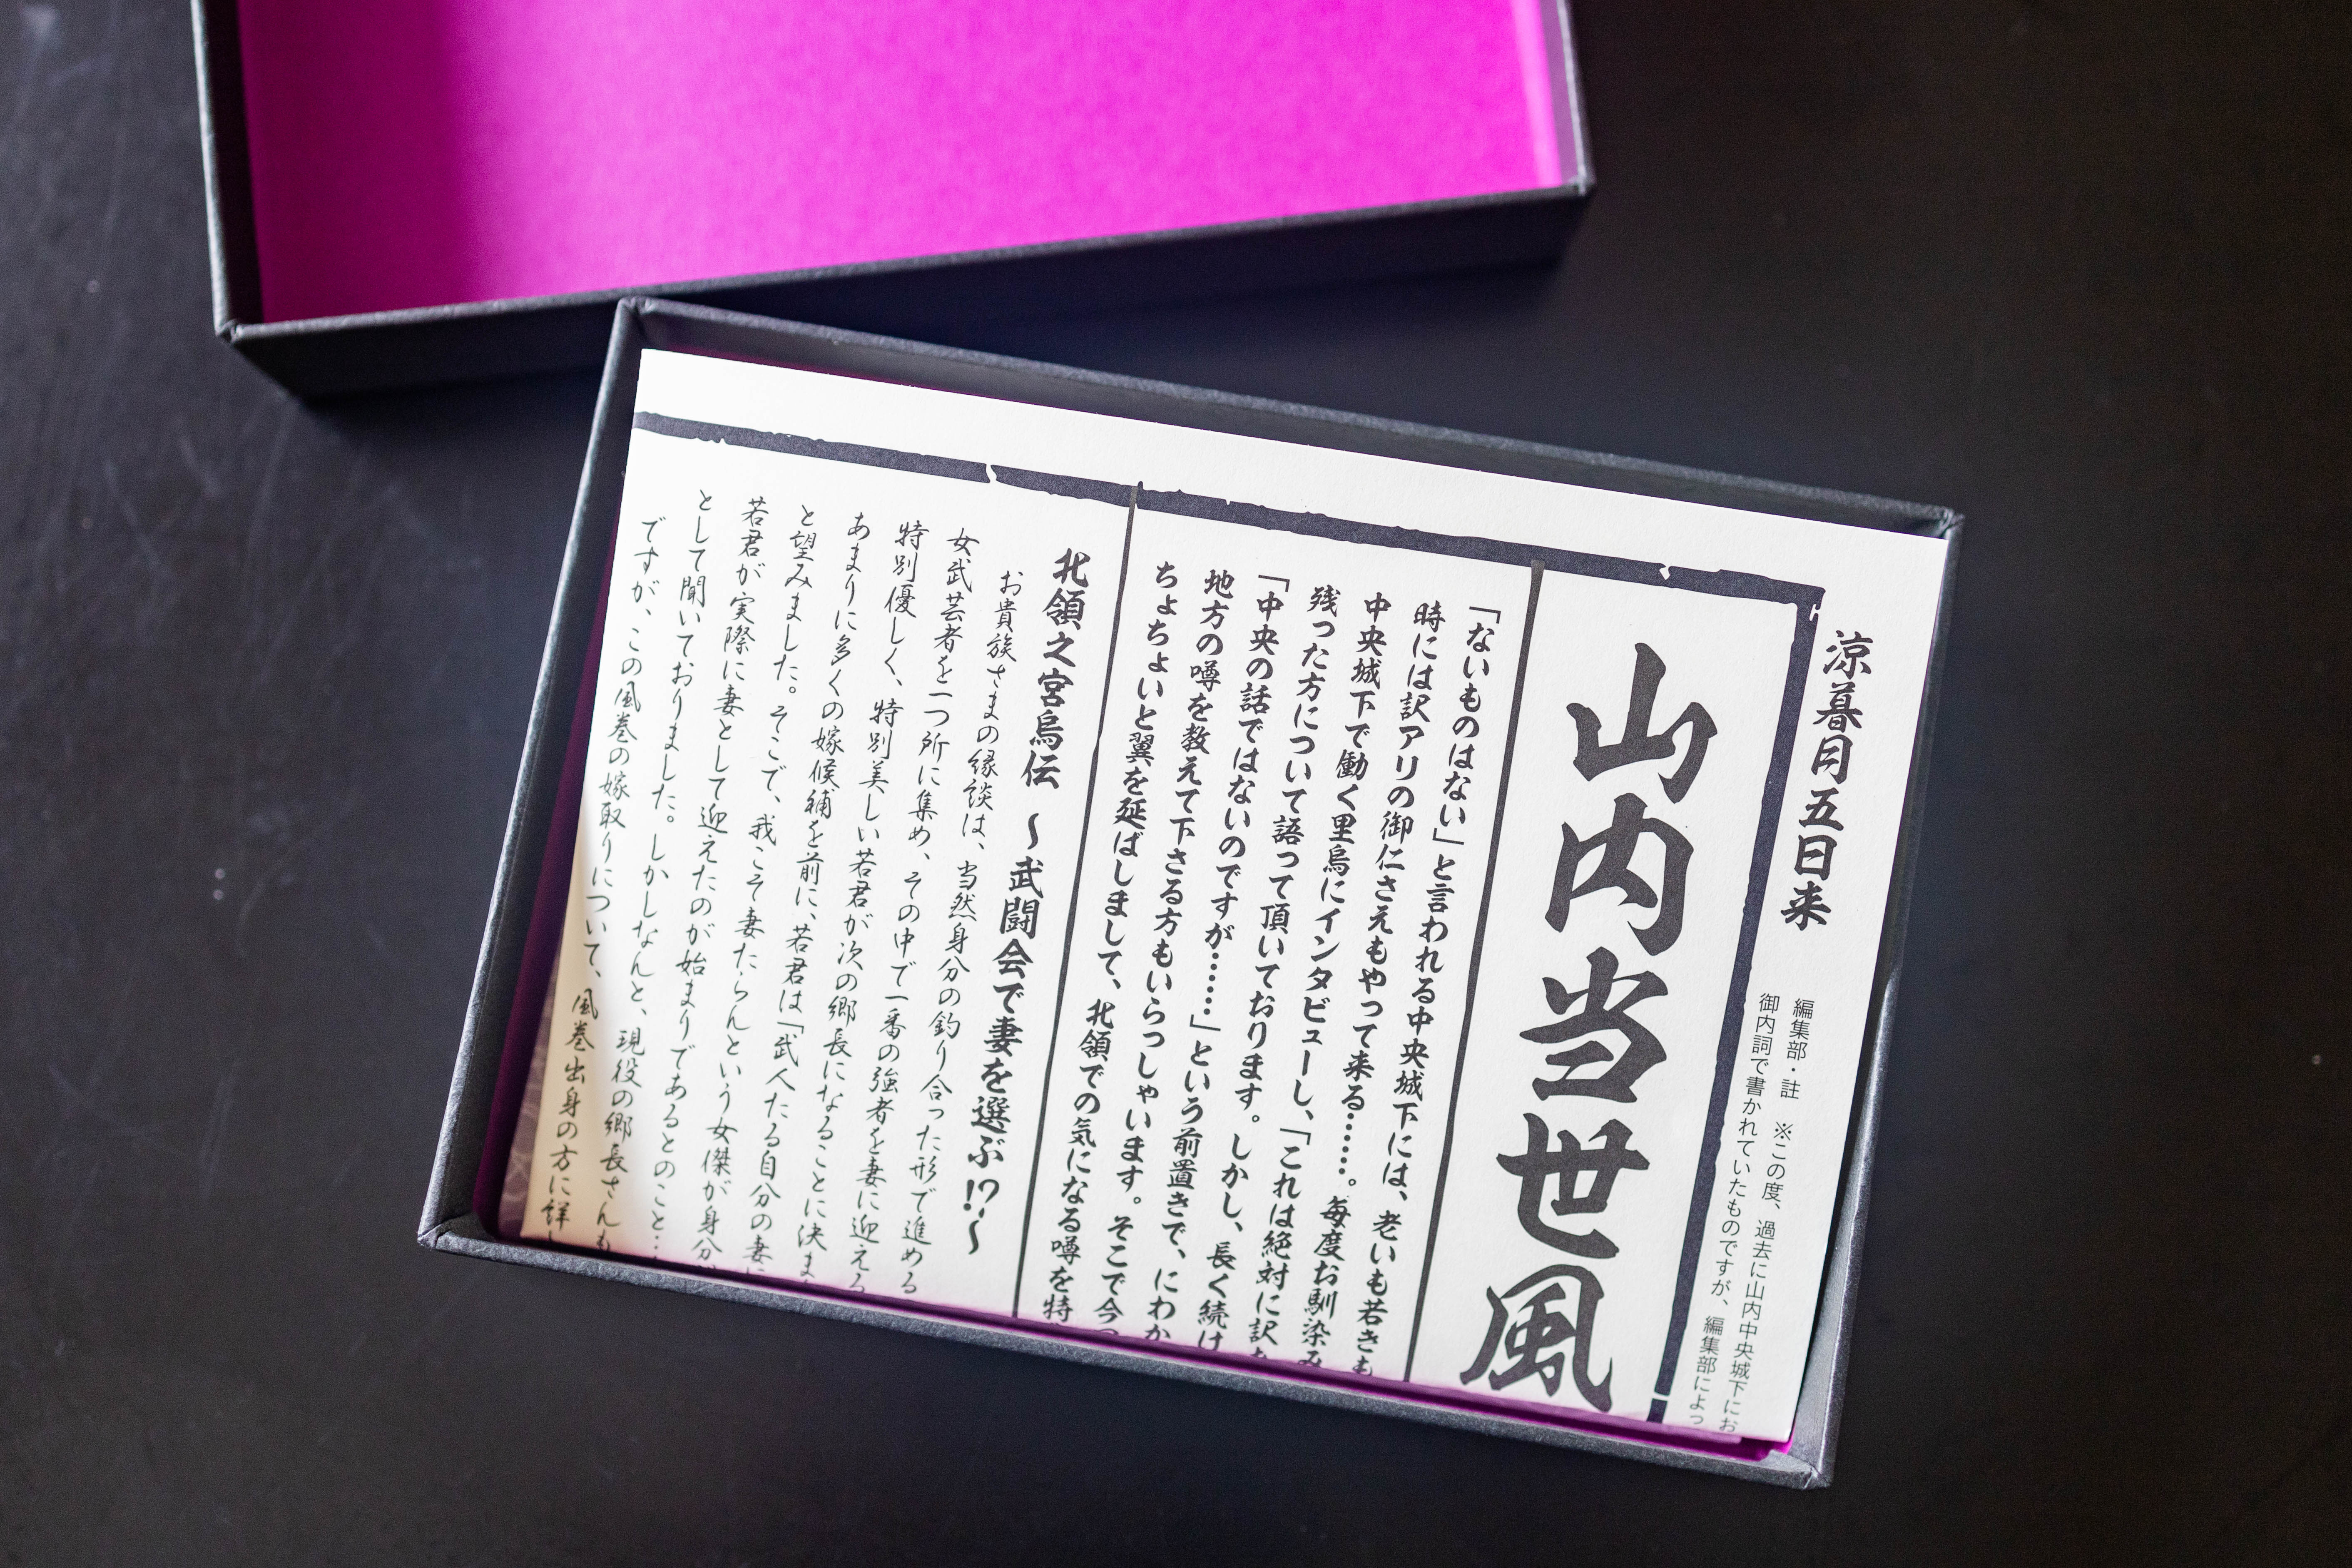 涼暮月五日来
編集部・註　※この度、過去に山内中央城下にお
御内詞で書かれていたものですが、編集部によっ
山内当世風
「ないものはない」と言われる中央城下には、老いも若きも
時には訳アリの御仁さえもやって来る……。毎度お馴染み
中央城下で働く里烏にインタビューし、「これは絶対に訳
残った方について語って頂いております。しかし、長く続け
「中央の話ではないのですが……」という前置きで、にわか
地方の噂を教えて下さる方もいらっしゃいます。そこで今
ちょちょいと翼を延ばしまして、北領での気になる噂を特
北領之宮烏伝　～武闘会で妻を選ぶ!?～
お貴族さまの縁談は、当然身分の釣り合った形で進める
女武芸者を一つ所に集め、その中で一番の強者を妻に迎える
特別優しく、特別美しい若君が次の郷長になることに決ま
あまりに多くの嫁候補を前に、若君は「武人たる自分の妻に
と望みました。そこで、我こそ妻たらんという女傑が身分
若君が実際に妻として迎えたのが始まりであるとのこと…
として聞いておりました。しかしなんと、現役の郷長さんも
ですが、この風巻の嫁取りについて、風巻出身の方に詳し